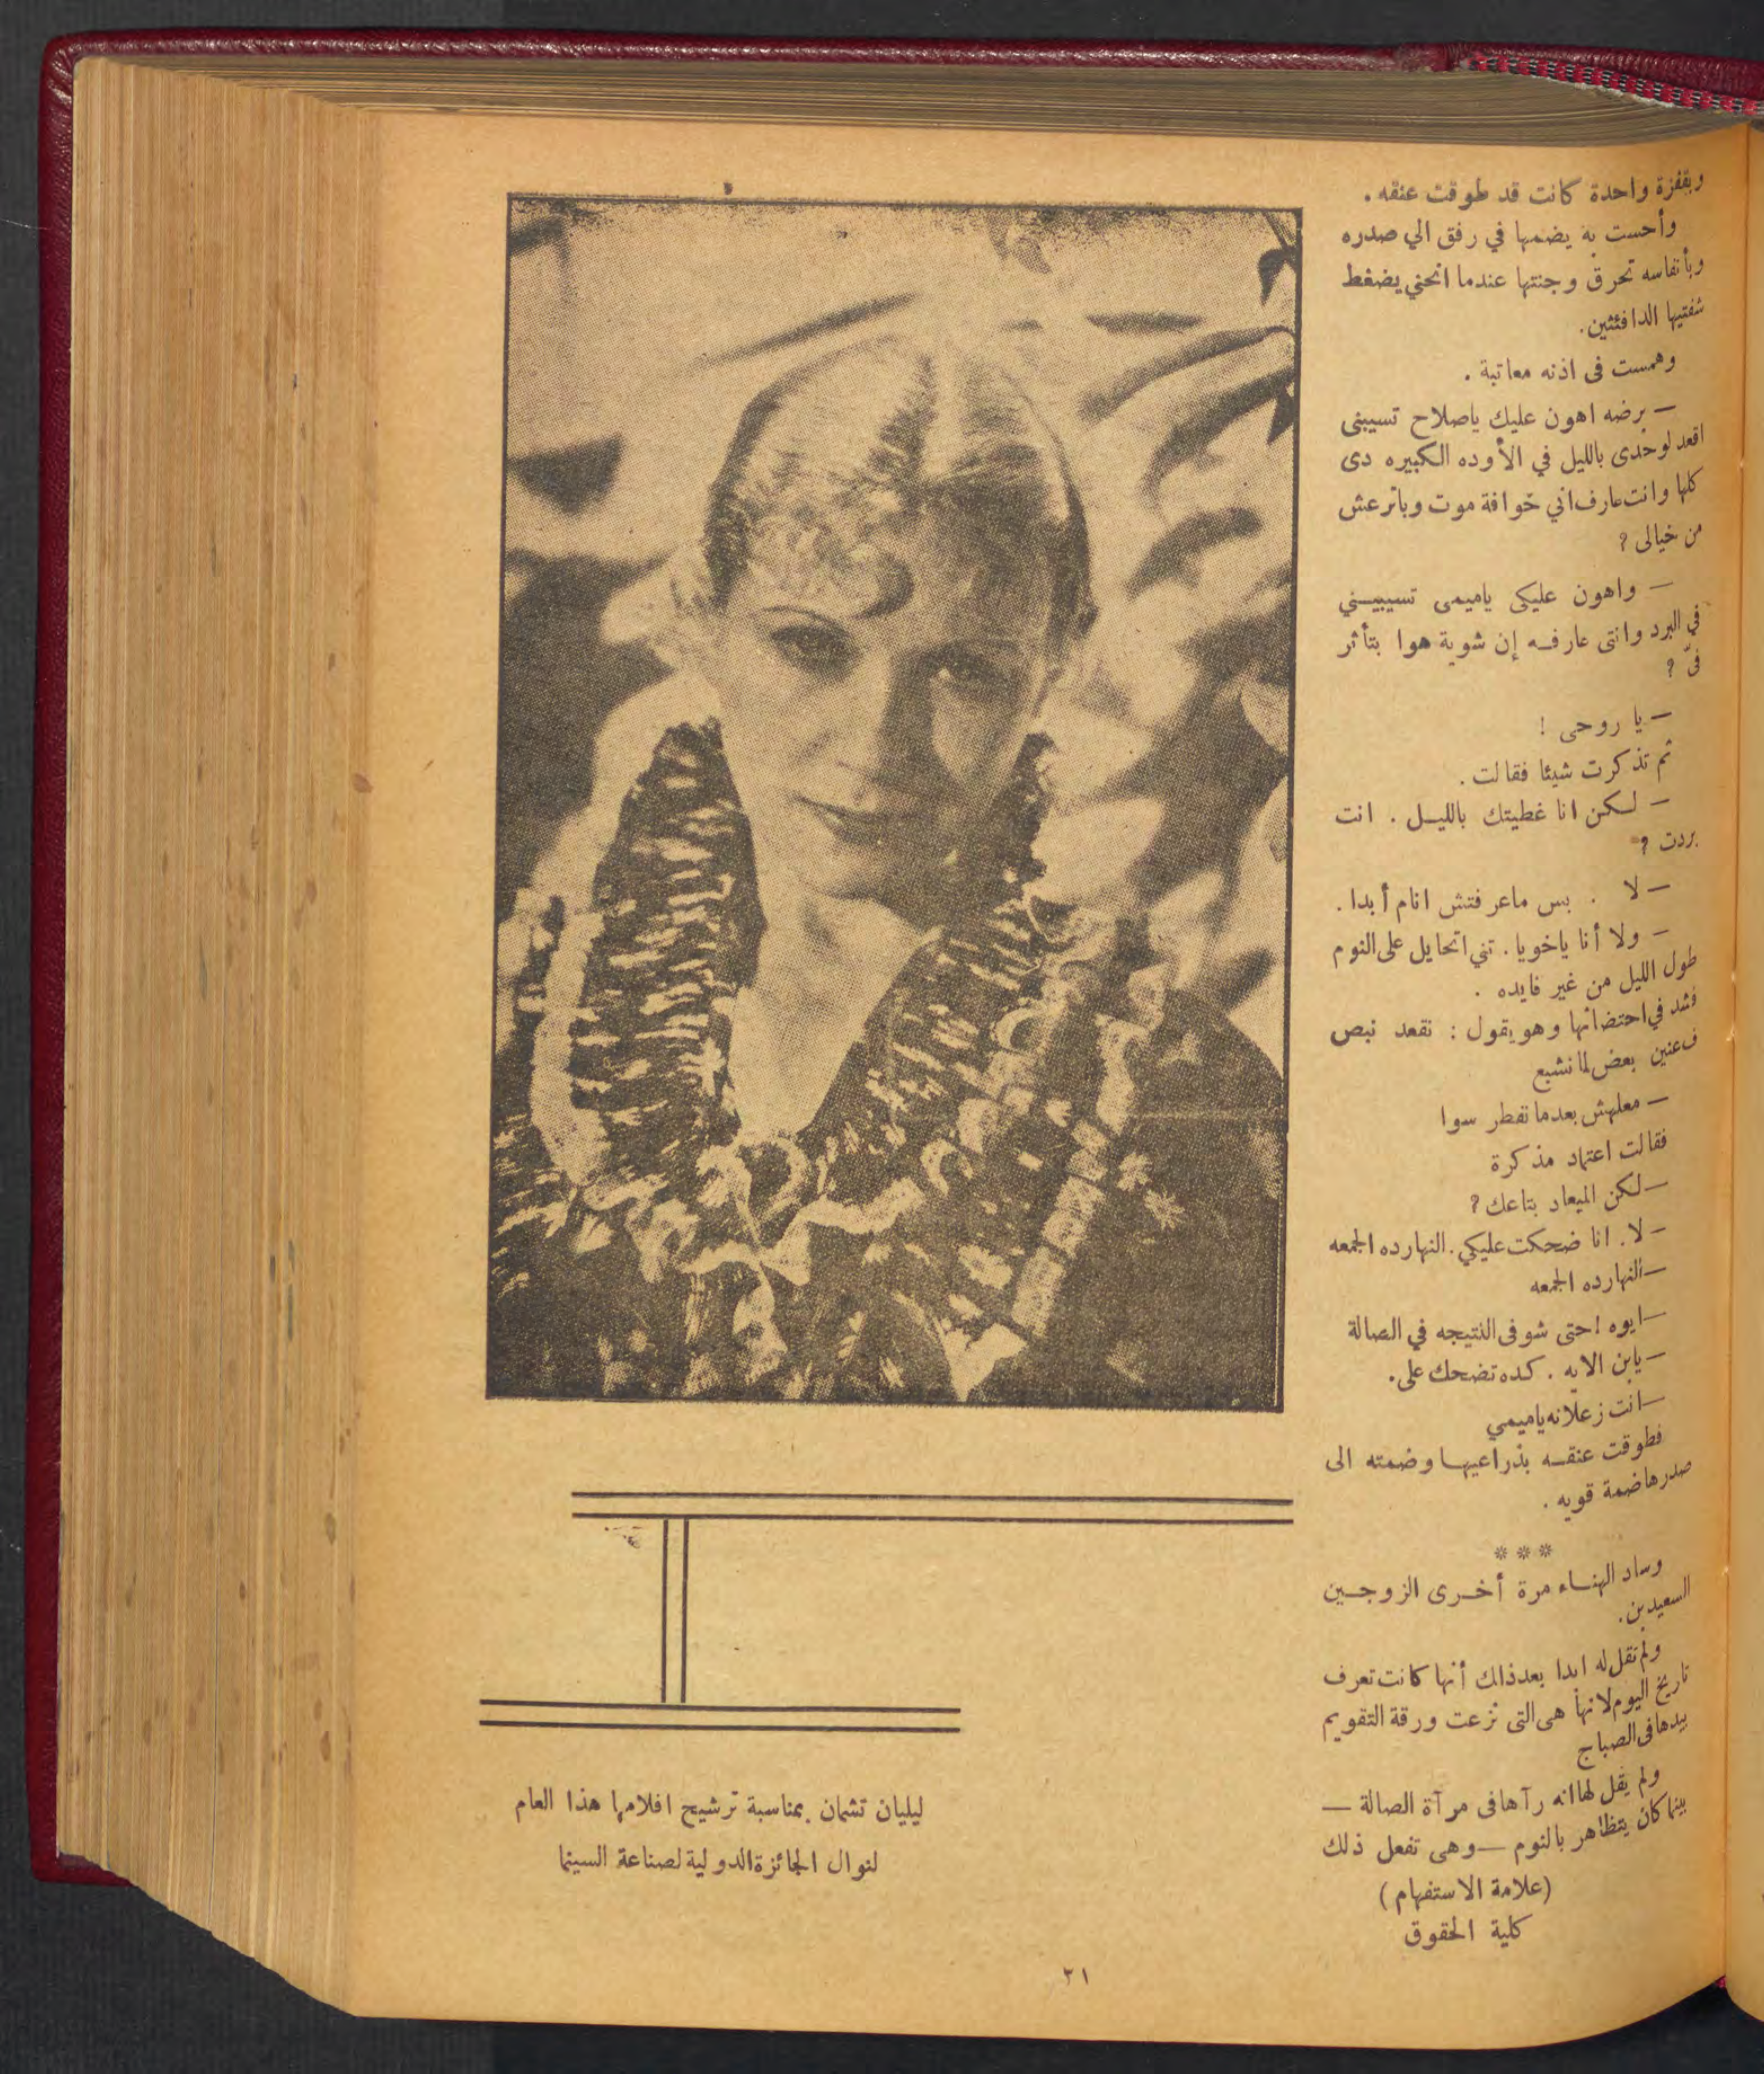 وبقفزة واحدة كانت قد طوقت عنقه .
وأحست به يضمها في رفق الي صدره
وبأنفاسه تحرق وجنتها عندما انحني يضغط
شفتيها الدافئتين .
وهمست فى اذنه معاتبة .
— برضه اهون عليك ياصلاح تسيبنى
اقعد لوحدى بالليل في الأوده الكبيره دى
كلها وانت عارف اني خوافة موت وباترعش
من خيالى ؟
— واهون عليكى ياميمى تسيبيني
في البرد وانتى عارفه إن شوية هوا بتأثر
فىّ ؟
— يا روحى !
ثم تذكرت شيئا فقالت .
— لكن انا غطيتك بالليل . انت
بردت ؟
— لا . بس ماعرفتش انام أبدا .
— ولا أنا ياخويا . تني اتحايل على النوم
طول الليل من غير فايده .
فشد في احتضانها وهو يقول : نقعد نبص
ف عنين بعض لما نشبع
— معلهش بعد ما نفطر سوا
فقالت اعتماد مذكرة
— لكن الميعاد بتاعك ؟
— لا . انا ضحكت عليكي . النهارده الجمعه
— النهارده الجمعه
— ايوه ! حتى شوفى النتيجه في الصالة
— يابن الايه . كده تضحك على .
— انت زعلانه ياميمي
فطوقت عنقه بذراعيها وضمته الى
صدرها ضمة قويه .
***
وساد الهناء مرة أخرى الزوجين
السعيدين .
ولم تقل له ابدا بعد ذاك أنها كانت تعرف
تاريخ اليوم لانها هى التى نزعت ورقة التقويم
بيدها فى الصباح
ولم يقل لها انه رآها فى مرآة الصالة —
بينما كان يتظاهر بالنوم — وهى تفعل ذلك
(علامة الاستفهام)
كلية الحقوق
ليليان تشمان بمناسبة ترشيح افلامها هذا العام
لنوال الجائزة الدولية لصناعة السينما
٢١